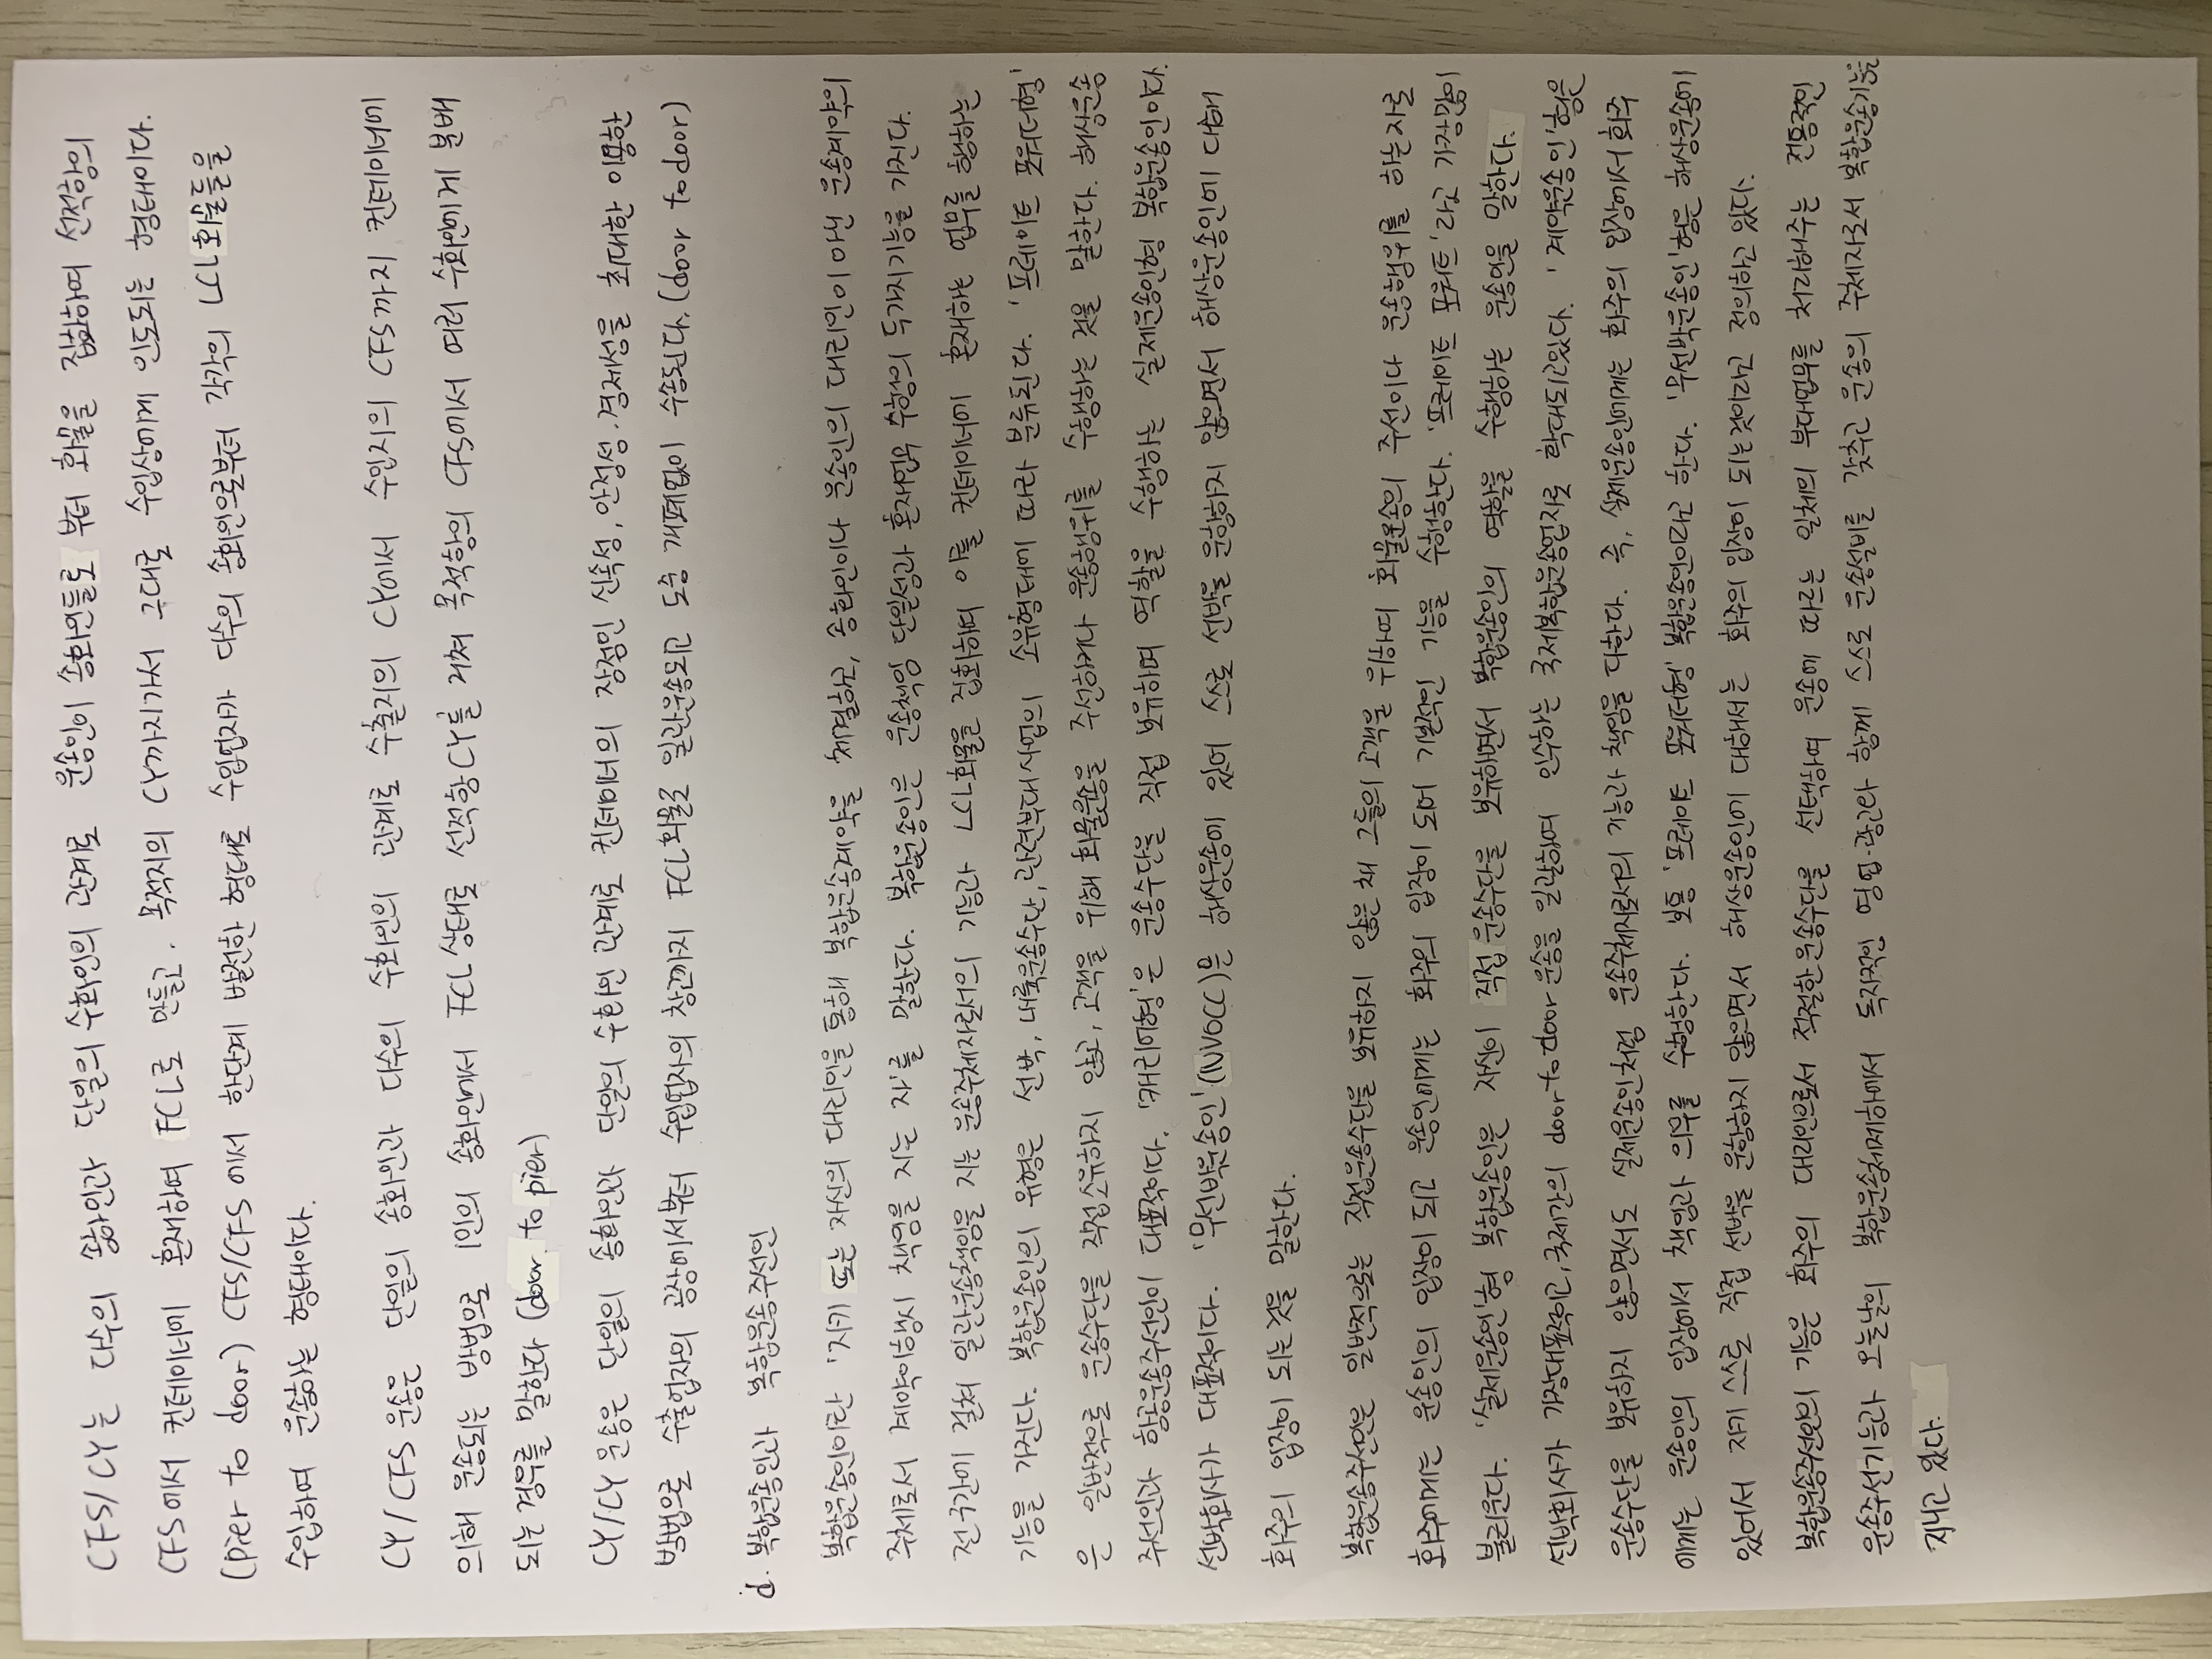 CFS/CY는 다수의 송하인과 단일의 수화인의 관계로 운송인이 송화인들로 부터 화물을 집화하여 선적항의
CFS에서 컨테이너에 혼재하여 FCL로 만들고. 목적지의 CY까지가서 그대로 수입상에게 인도되는 형태이다.
(pier to door) CFS/CFS에서 한단계 발전한 형태로 수입업자가 다수의 송화인으로부터 각각의 LCL화물들을
수입하여 운송하는 형태이다.
CY/CFS 운송은 단일의 송화인과 다수의 수화인의 관계로 수출지의 CY에서 수입지의 CFS까지 컨테이너에
의해 운송되는 방법으로 1인의 송화인에서 FCL상태로 선적항CY를 거쳐 목적항의 CFS에서 여러 수화인에게 분배
되는 경우를 말한다 (door to pier)
CY/CY 운송은 단일의 송화인과 단일의 수화인 관계로 컨테이너의 장점인 신속성, 안정성·경제성을 최대한 이용한
방법으로 수출업자의 공장에서부터 수입업자의 창고까지 FCL화물로 일관운송되고 도중 개폐없이 수송된다. (door to door)
d. 복합운송인과 복합운송주선인
복합운송인이란 '자기 또는 자신의 대리인을 통해 복합운송계약을 체결하고, 송화인이나 운송인의 대리인이 아닌 운송계약의
주체로서 계약이행시 책임을 지는 자'를 말한다. 복합운송인은 운송책임 단일성과 혼재업무 수행의 두가지기능을 가진다.
전 구간에 걸쳐 일관운송책임을 지는 운송주체자로서의 기능과 LCL화물을 집화하여 이를 컨테이너에 혼재하는 업무를 행하는
기능을 가진다. 복합운송인의 유형은 선박, 내륙운송수단, 관련부대사업의 소유형태에 따라 분류된다. '프레이트 포워더형'
은 일반적으로 운송수단을 직접소유하지 않고, 고객을 위해 화물운송을 주선하거나 운송행위를 수행하는 것을 말한다. 해상운송
주선인과 항공운송주선인이 대표적이다. '캐리어형'은 운송수단을 직접 보유하며 역할을 수행하는 실제운송인형 복합운송인이다.
선박회사가 대표적이다. '무선박운송인'(NVOCC)은 해상운송에 있어 스스로 선박을 운항하지 않으면서 해상운송인에 대해
화주의 입장이 되는것을 말한다.
복합운송주선인은 일반적으로는 직접운송수단을 보유하지 않은 채 그들의 고객을 위하여 화물운송의 주선이나 운송행위를 하는자로
화주에게는 운송인의 입장이 되고 운송인에게는 화주의 입장이 되어 기본적인 기능을 수행한다. '프레이트 포워트'라고 가장많이
불리운다. '실제운송인'형 복합운송인은 자신이 직접 운송수단을 보유하면서 복합운송인의 역할을 수행하는 운송인을 말한다.
선박회사가 가장대표적이고, 국제간의 door to door 운송을 일괄하여 인수하는 국제복합운송업자로 확대되고있다. '계약운송인'형은
운송수단을 보유하지 않으면서도 실제운송인처럼 운송주체자로서의 기능과 책임을 다한다. 즉, 실제운송인에게는 화주의 입장에서 화주
에게는 운송인의 입장에서 책임과 의무를 수행한다. 보통 '프레이트 포워더형' 복합운송인이라고 한다. '무선박운송인'형은 해상운송에
있어서 자기 스스로 직접 선박을 운항하지 않으면서 해상운송인에 대해서는 화주의 입장이 되는것이라고 정의하고 있다.
복합운송주선인의 기능은 화주의 대리인으로서 적절한 운송수단을 선택하여 운송에 따르는 일체의 부대업무를 처리해주는 전통적인
운송주선기능과 오늘날의 복합운송체제하에서 독자적인 영업·광고와 함께 스스로 운송설비를 갖추고 운송의 주체자로서 복합운송기능을
지니고 있다.